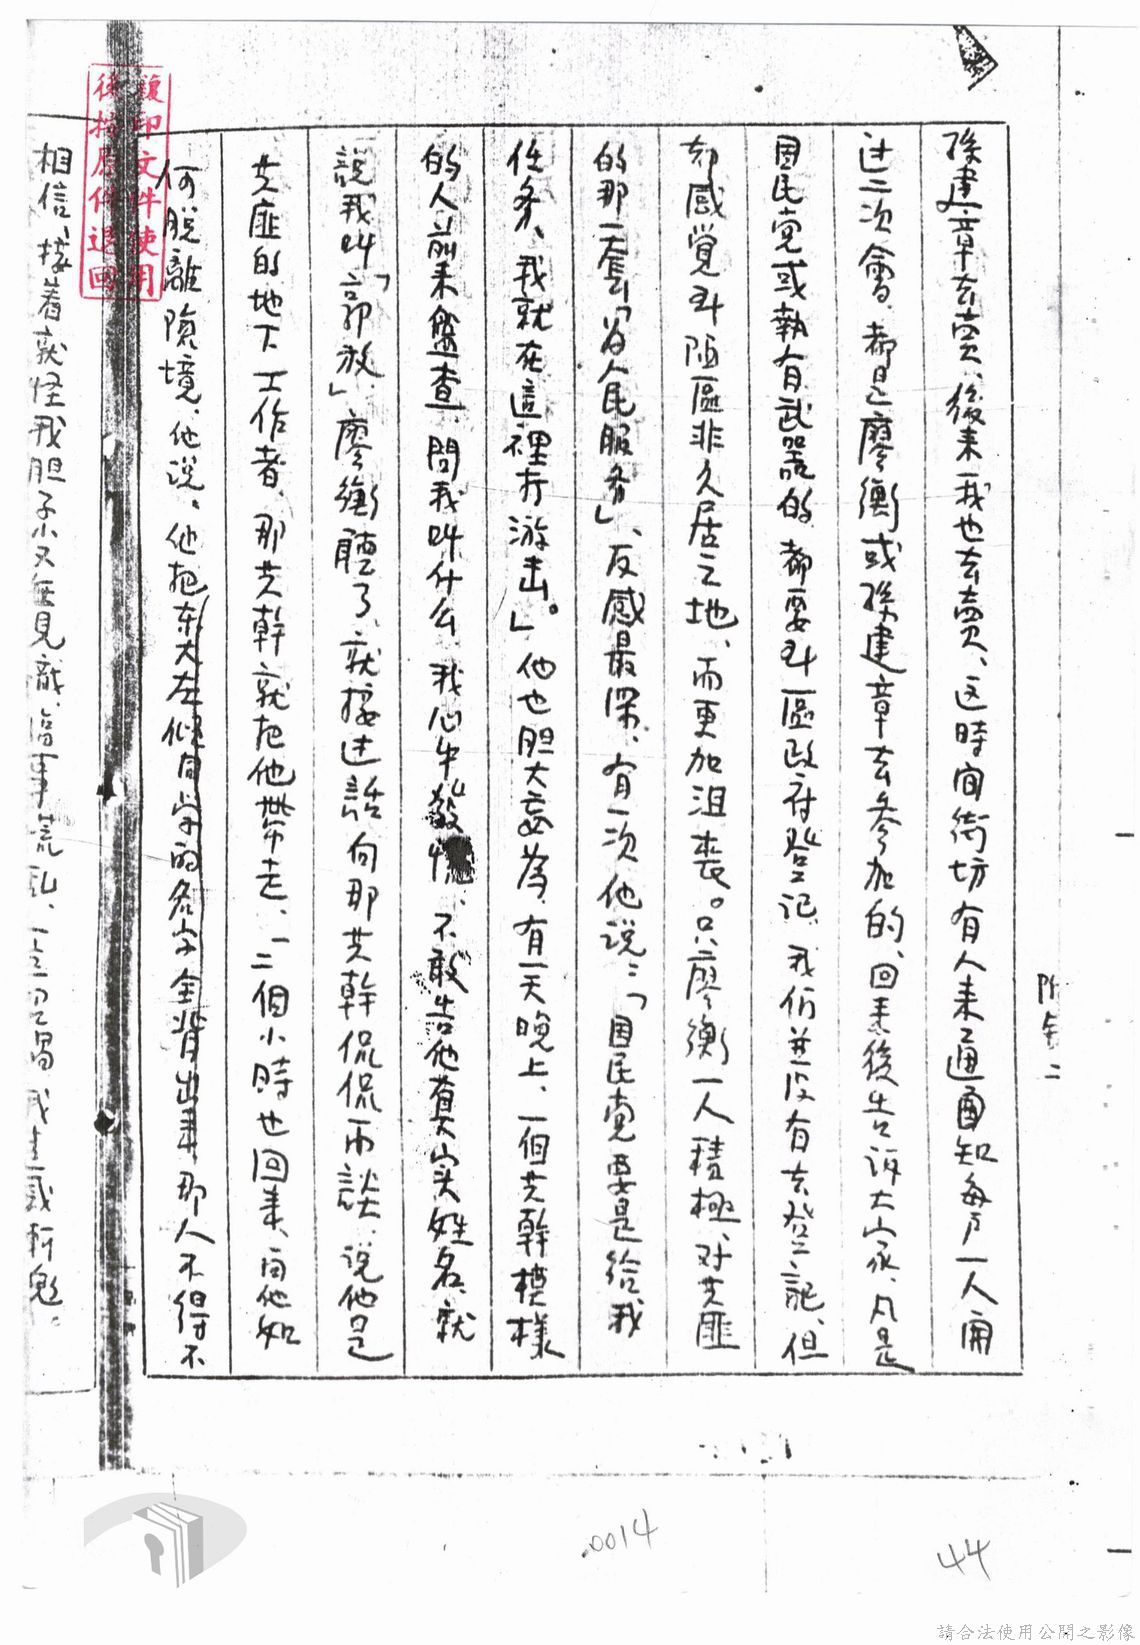 附錄二
孫建章去卖、後来我也去卖、这時间街坊有人来通知每户一人開
过二次會、都是廖衡或孫建章去参加的、回来後告訴大家、凡是
国民党或執有武器的、都要到區政府登记、我们並没有去登記、但
却感覚到陷區非久居之地、而更加沮丧。只廖衡一人積極、对共匪
的那一套「为人民服务」、反感最深、有一次他说：「国民党要是給我
任务、我就在這裡打游击。」他也胆大妄為、有一天晚上、一個共幹模樣
的人前来盤查、問我叫什么、我心中發慌、不敢告他真实姓名、就
說我叫「郭放」、廖衡聽了、就接过話向那共幹侃侃而談、说他是
共匪的地下工作者、那共幹就把他帶走、一二個小時他回来、问他如
何脱離險境、他说、他把東大左傾同学的名字全背出来、那人不得不
相信、接着就怪我胆子小又無見識、臨事荒乱、
複印文件使用
後持原件退回
.0014
44
請合法使用公開之影像